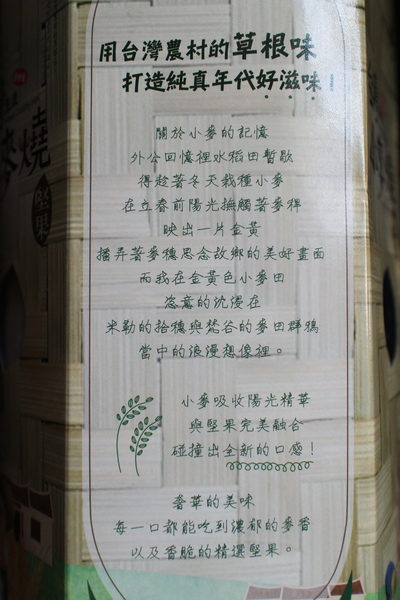 用台灣農村的草根味
打造純真年代好滋味
關於小麥的記憶
外公回憶裡水稻田暫歇
得趁著冬天栽種小麥
在立春前陽光撫觸著麥稈
映出一片金黃
撥弄著麥穗思念故鄉的美好畫面
而我在金黃色小麥田
恣意的沈浸在
米勒的拾穗與梵谷的麥田群鴉
當中的浪漫想像裡。
小麥吸收陽光精華
與堅果完美融合
碰撞出全新的口感！
奢華的美味
每一口都能吃到濃郁的麥香
以及香脆的精選堅果。
燒
堅果